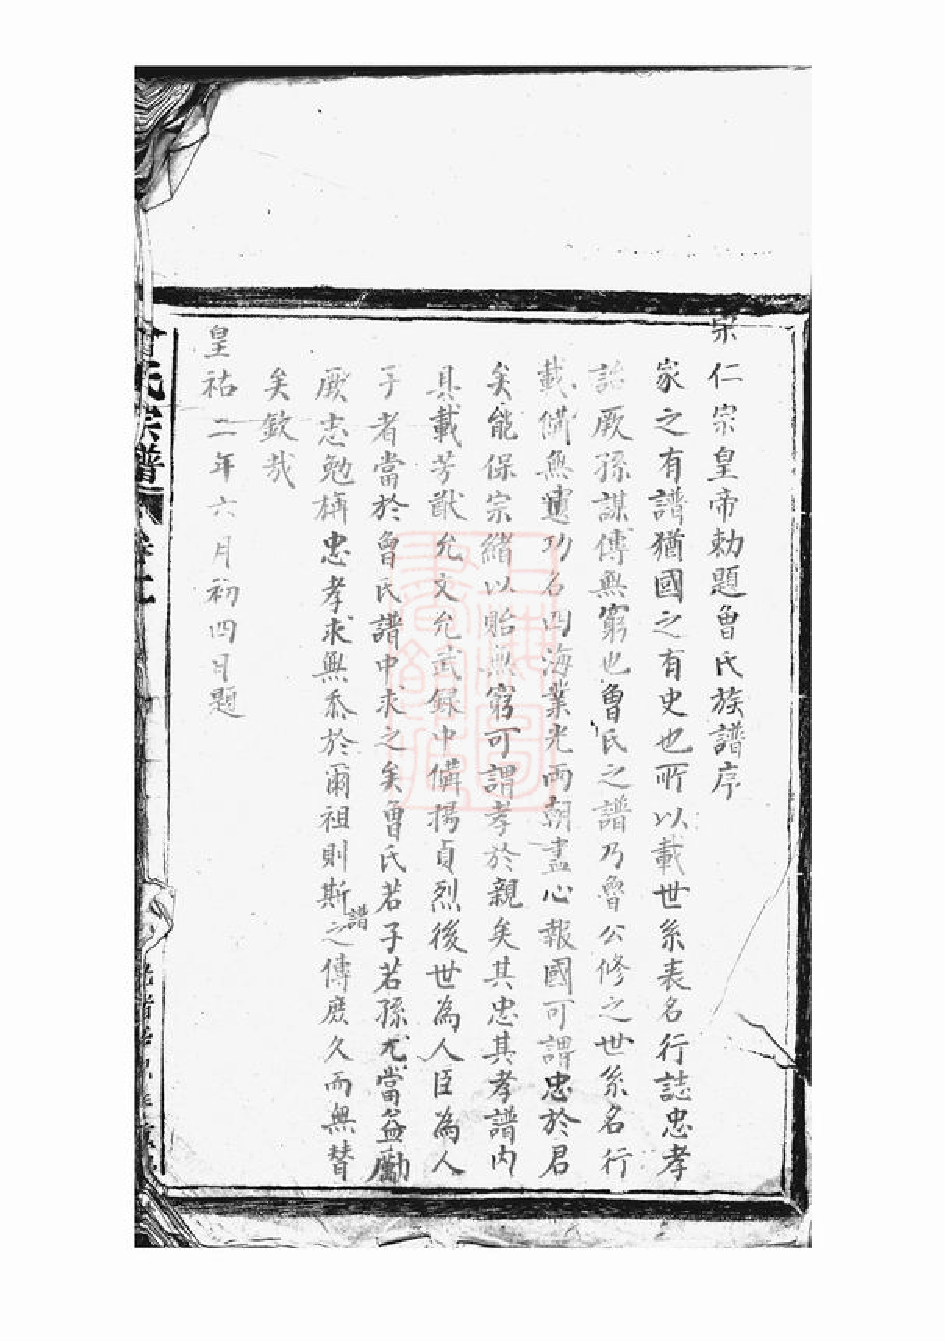 宗仁宗皇帝勅題曾氏族譜序
家之有譜猶國之有史也所以載世系表名行誌忠孝
詒厥孫謀傳無窮也曾氏之譜乃魯公修之世系名行
載備無遺功名四海業光兩朝盡心報國可謂忠於君
矣能保宗緒以貽無窮可謂孝於親矣其忠其孝譜內
具載芳猷允文允武録中備揚貞烈後世為人臣為人
子者當於曾氏譜中求之矣曾氏若子若孫尤當益勵
厥志勉稱忠孝求無忝於爾祖則斯譜之傳庶久而無替
矣欽哉
皇祐二年六月初四日題
曾氏宗譜